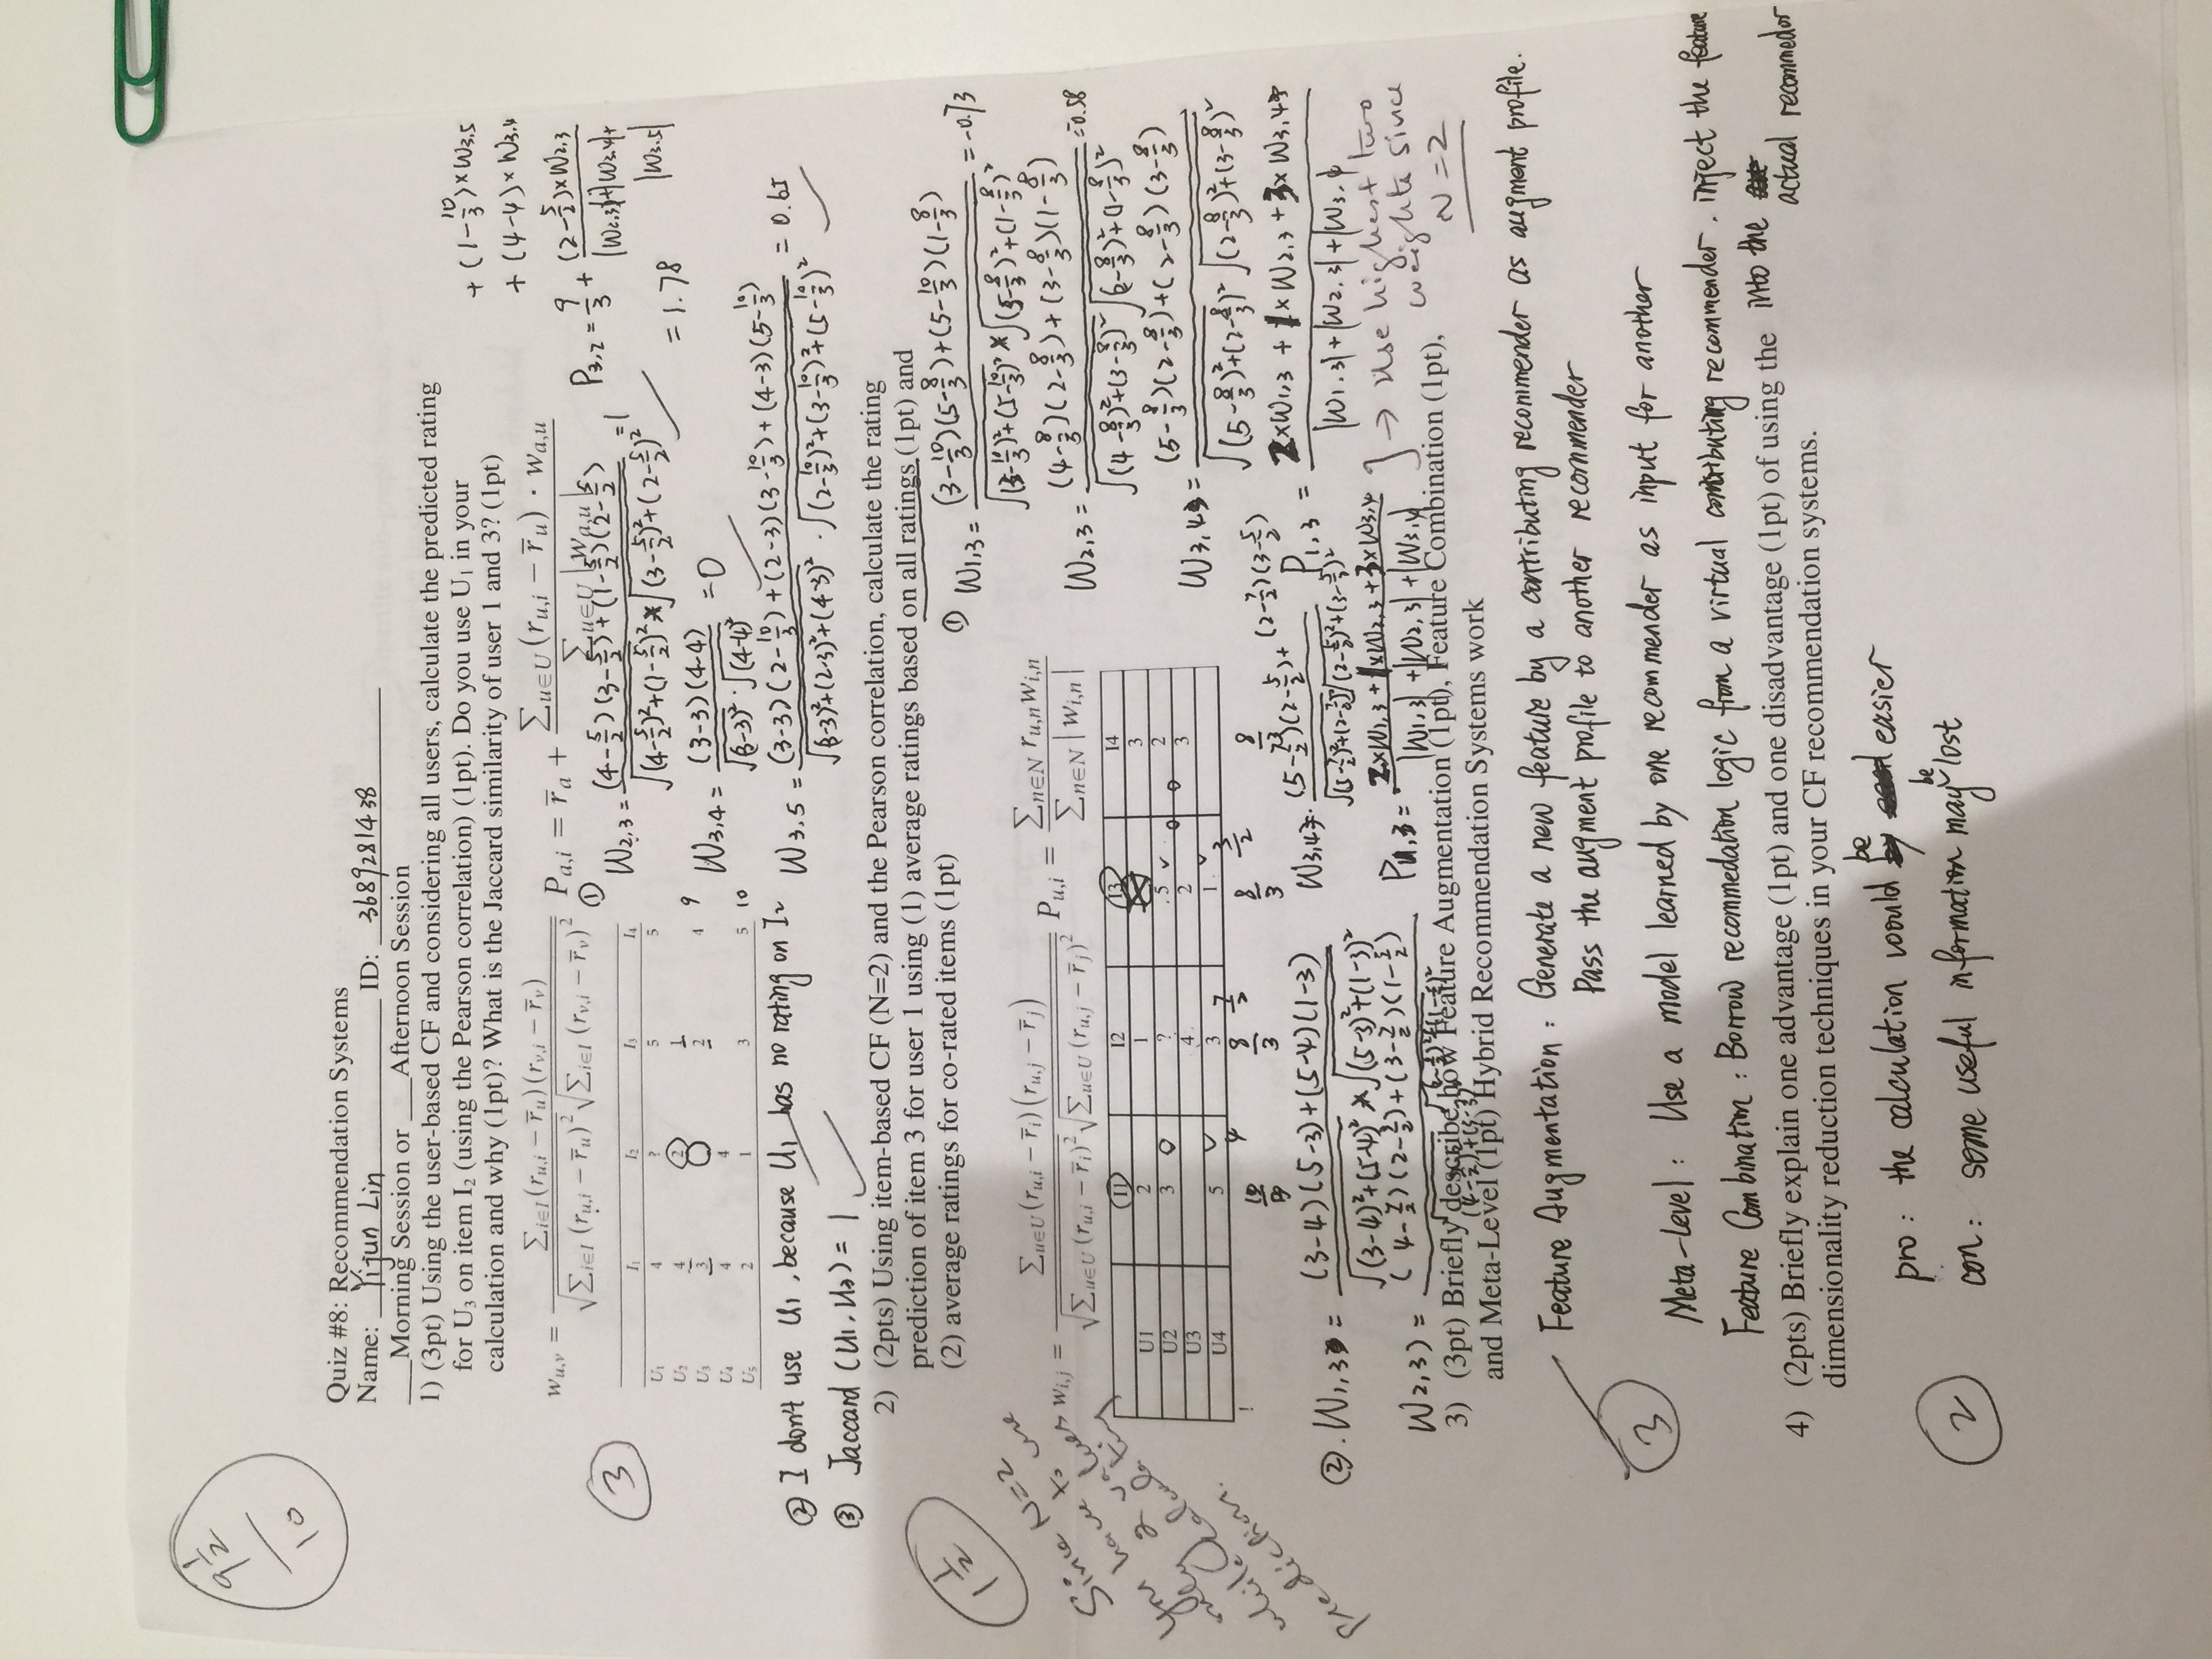 9 1/2 / 10
Quiz #8: Recommendation Systems
Name: Yijun Lin ID: 3689281438
___Morning Session or ___Afternoon Session
1) (3pt) Using the user-based CF and considering all users, calculate the predicted rating
for U₃ on item I₂ (using the Pearson correlation) (1pt). Do you use U₁ in your
calculation and why (1pt)? What is the Jaccard similarity of user 1 and 3? (1pt)
+ (1-10/3)×W3,5
+ (4-4)×W3,4
w_{u,v} = Σ_{i∈I}(r_{u,i} − r̄_u)(r_{v,i} − r̄_v) / √Σ_{i∈I}(r_{u,i} − r̄_u)² √Σ_{i∈I}(r_{v,i} − r̄_v)² P_{a,i} = r̄_a + Σ_{u∈U}(r_{u,i} − r̄_u) · w_{a,u} / Σ_{u∈U}|w_{a,u}|
P3,2 = 9/3 + (2-5/2)×W2,3 / |W2,3|+|W3,4|+|W3,5|
= 1.78
3
① W2,3 = (4-5/2)(3-5/2)+(1-5/2)(2-5/2) / √(4-5/2)²+(1-5/2)² * √(3-5/2)²+(2-5/2)² = 1
I₁ I₂ I₃ I₄
U₁ 4 ? 5 5
U₂ 4 2 1
U₃ 3 2 4 9
U₄ 4 4
U₅ 2 1 3 5 10
W3,4 = (3-3)(4-4) / √(3-3)² · √(4-4)² = 0
W3,5 = (3-3)(2-10/3)+(2-3)(3-10/3)+(4-3)(5-10/3) / √(3-3)²+(2-3)²+(4-3)² · √(2-10/3)²+(3-10/3)²+(5-10/3)² = 0.65
② I don't use U₁, because U₁ has no rating on I₂
③ Jaccard (U₁, U₃) = 1
2) (2pts) Using item-based CF (N=2) and the Pearson correlation, calculate the rating
prediction of item 3 for user 1 using (1) average ratings based on all ratings (1pt) and
(2) average ratings for co-rated items (1pt)
1 1/2
Since N=2
you have to use
only 2 values
while calculating
prediction.
① W1,3 = (3-10/3)(5-8/3)+(5-10/3)(1-8/3) / √(3-10/3)²+(5-10/3)² * √(5-8/3)²+(1-8/3)² = -0.73
w_{i,j} = Σ_{u∈U}(r_{u,i} − r̄_i)(r_{u,j} − r̄_j) / √Σ_{u∈U}(r_{u,i} − r̄_i)² √Σ_{u∈U}(r_{u,j} − r̄_j)² P_{u,i} = Σ_{n∈N} r_{u,n}w_{i,n} / Σ_{n∈N}|w_{i,n}|
W2,3 = (4-8/3)(2-8/3)+(3-8/3)(1-8/3) / √(4-8/3)²+(3-8/3)² √(2-8/3)²+(1-8/3)² = -0.58
I1 I2 I3 I4
U1 2 1 3
U2 3 ? 5 2
U3 4 2 3
U4 5 3 1
4 7/2 3/2
10/3 8/3 8/3 8/3
W3,4 = (5-8/3)(2-8/3)+(2-8/3)(3-8/3) / √(5-8/3)²+(2-8/3)² √(2-8/3)²+(3-8/3)²
P1,3 = 2×W1,3 + 1×W2,3 + 3×W3,4 / |W1,3|+|W2,3|+|W3,4|
②. W1,3 = (3-4)(5-3)+(5-4)(1-3) / √(3-4)²+(5-4)² * √(5-3)²+(1-3)²
W3,4 = (5-7/2)(2-5/2)+(2-7/2)(3-5/2) / √(5-7/2)²+(2-7/2)² √(2-5/2)²+(3-5/2)²
P1,3 = 2×W1,3 + 1×W2,3 + 3×W3,4 / |W1,3|+|W2,3|+|W3,4|
→ Use highest two
weights since
N=2
3) (3pt) Briefly describe how Feature Augmentation (1pt), Feature Combination (1pt),
and Meta-Level (1pt) Hybrid Recommendation Systems work
Feature Augmentation: Generate a new feature by a contributing recommender as augment profile.
Pass the augment profile to another recommender
3
Meta-Level: Use a model learned by one recommender as input for another
Feature Combination: Borrow recommedation logic from a virtual contributing recommender. inject the feature
into the
actual recommedor
4) (2pts) Briefly explain one advantage (1pt) and one disadvantage (1pt) of using the
dimensionality reduction techniques in your CF recommendation systems.
pro: the calculation would be easier
2
con: some useful information may be lost